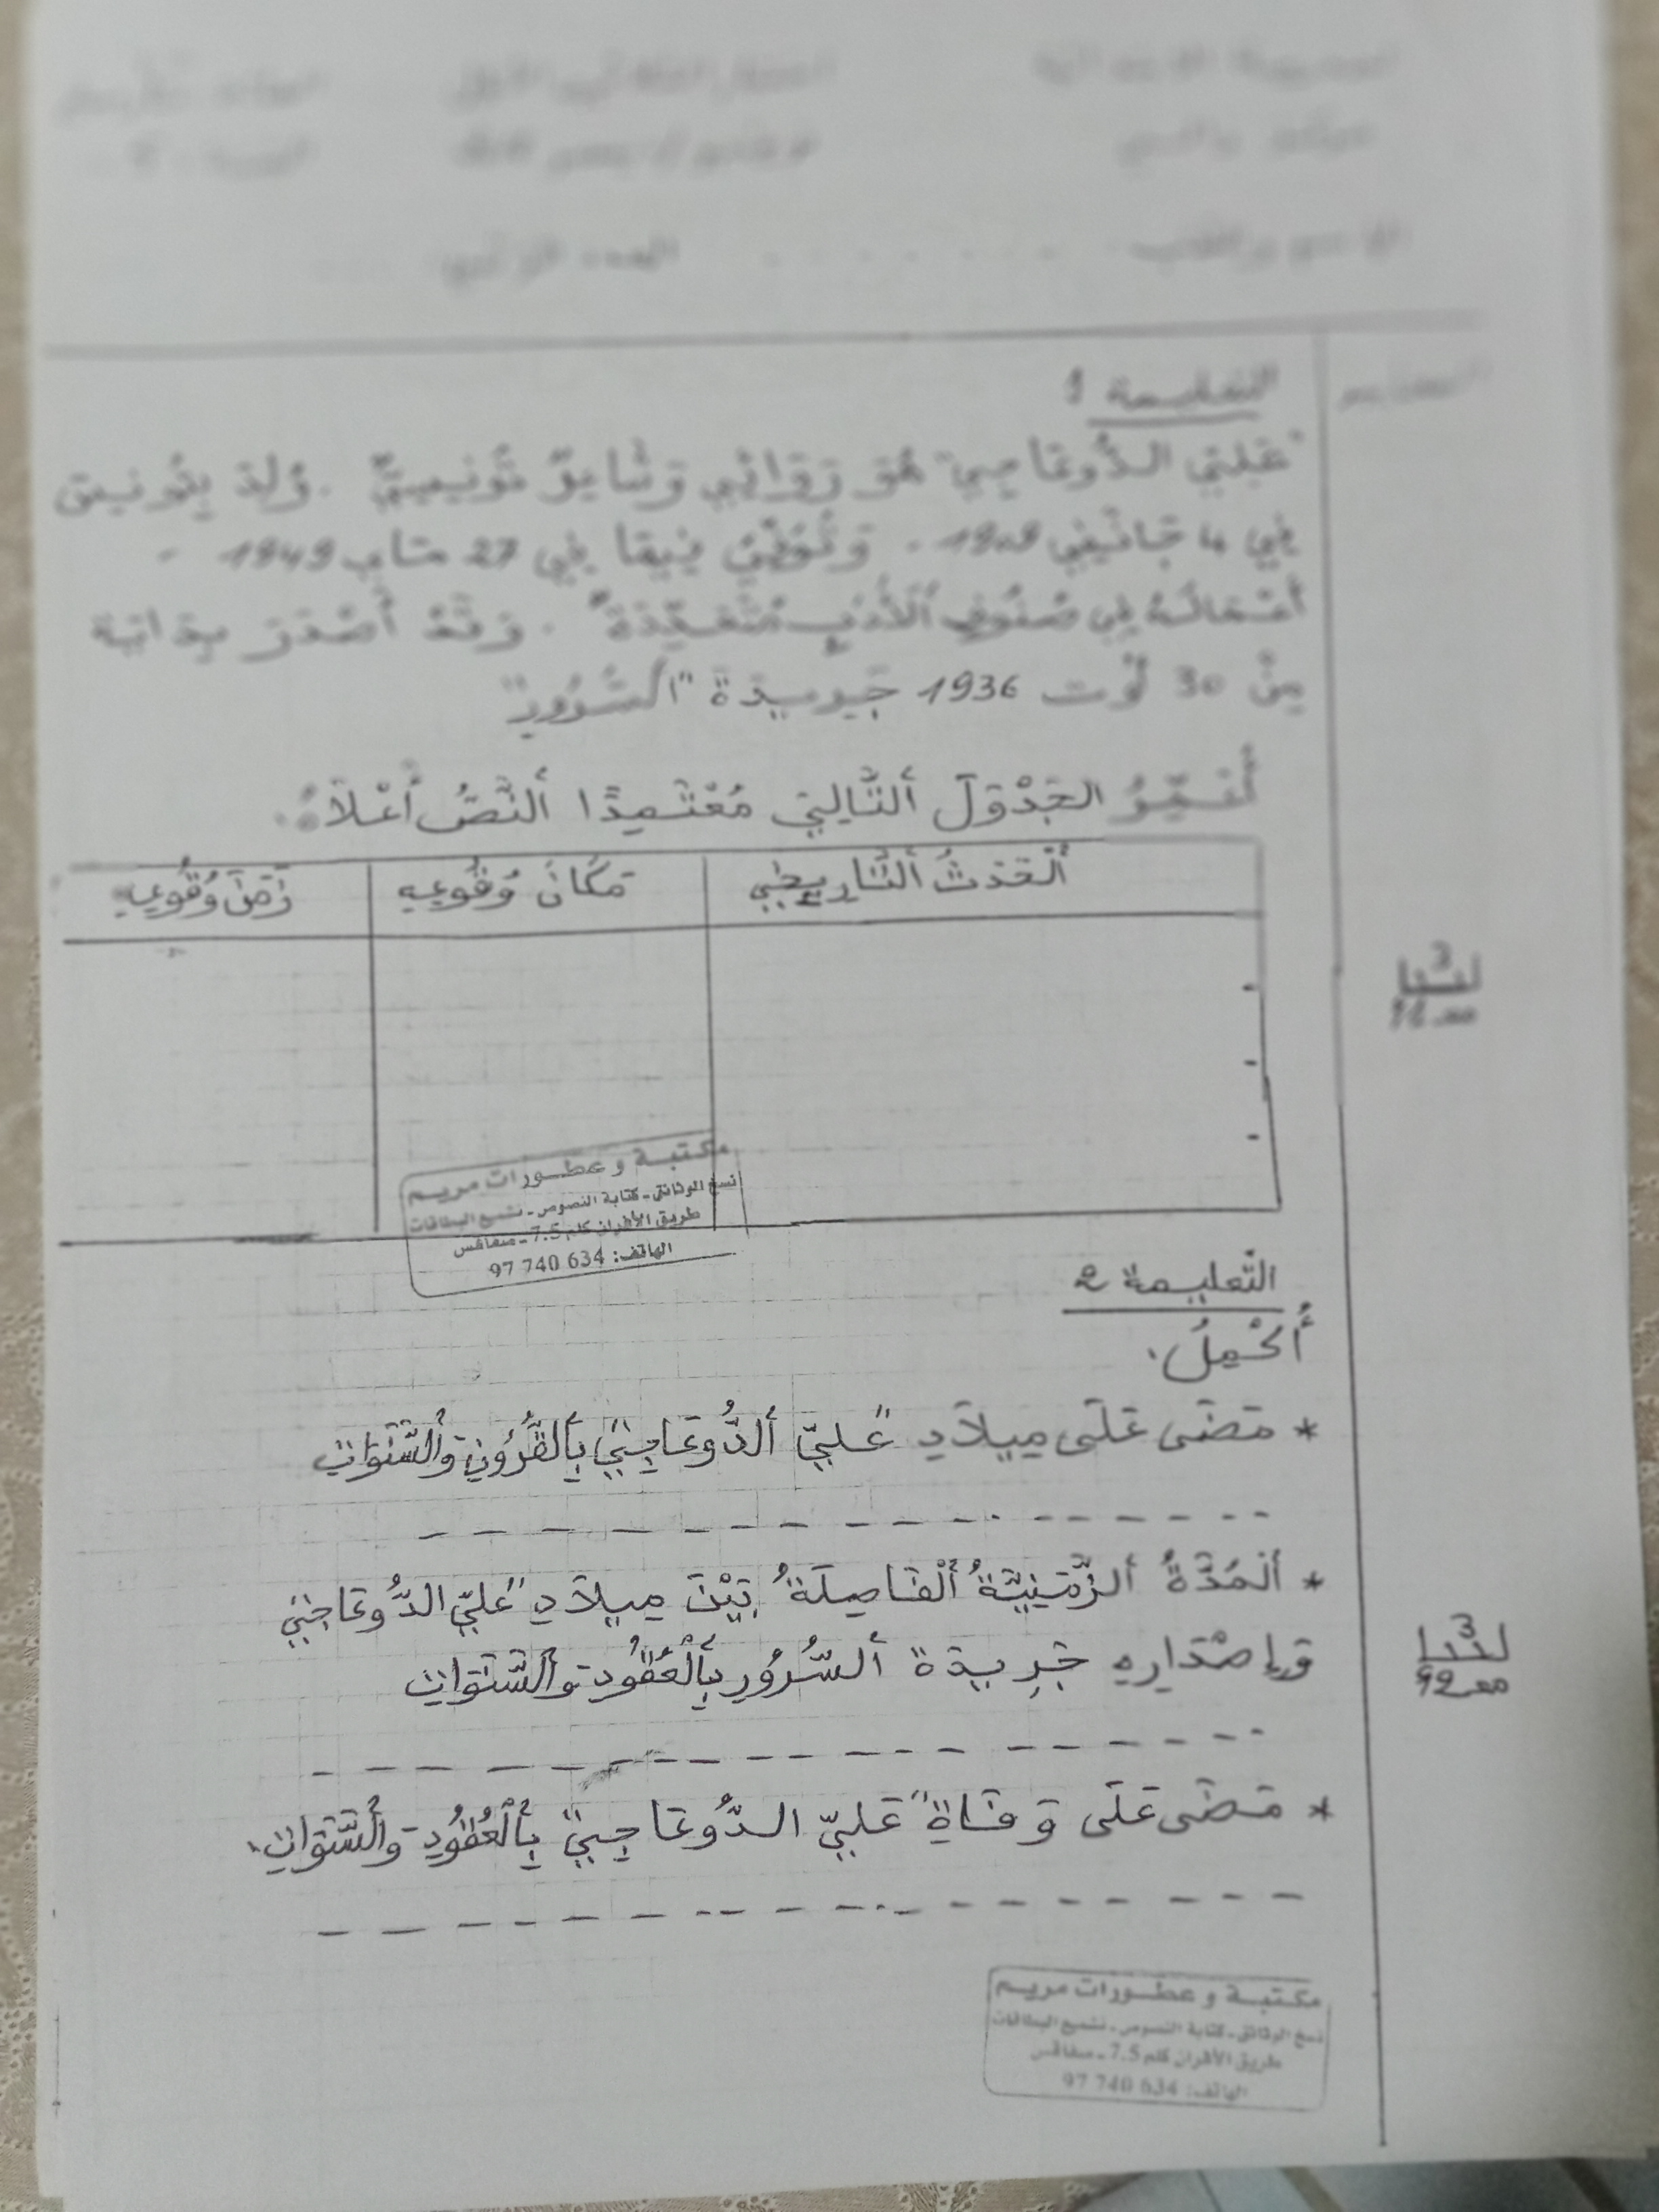 التعليمة 1
"عَلِيّ الدُّوعَاجِي" هُوَ رِوَائِي وَشَاعِرٌ تُونِسِيٌّ. وُلِدَ بِتُونِسَ
فِي 4 جَانْفِي 1909. وَتُوُفِّيَ فِيهَا فِي 27 مَاي 1949.
أَعْمَالُهُ فِي صُنُوفِ الْأَدَبِ مُتَعَدِّدَةٌ. وَقَدْ أَصْدَرَ بِدَايَة
مِنْ 30 أُوت 1936 جَرِيدَة "السُّرُور"
أُعَمِّرُ الجَدْوَلَ ألتَّالِيَ مُعْتَمِدًا ألنَّصَّ أَعْلَاهُ.
ألْحَدَثُ ألتَّارِيخِي
مَكَانُ وُقُوعِهِ
زَمَنُ وُقُوعِهِ
3
معـ 1
مكتبة و عطورات مريم
نسخ الوثائق - كتابة النصوص - تشميع البطاقات
طريق الأفران كلم 7.5 - صفاقس
الهاتف: 634 740 97
التّعليمة 2
أُكْمِلُ.
* مَضَى عَلَى مِيلاَدِ "عَلِيّ ألدُّوعَاجِيّ" بِألقُرُونِ وَألسَّنَوَاتِ
* ألْمُدَّةُ ألزَّمَنِيَّةُ ألْفَاصِلَةُ بَيْنَ مِيلاَدِ "عَلِيّ الدُّوعَاجِيّ"
وَإِصْدَارِهِ جَرِيدَة ألسُّرُور بِألْعُقُودِ وَألسَّنَوَاتِ
3
معـ 2
* مَضَى عَلَى وَفَاةِ "عَلِيّ الدُّوعَاجِيّ" بِألْعُقُودِ وَألسَّنَوَاتِ.
مكتبة و عطورات مريم
نسخ الوثائق - كتابة النصوص - تشميع البطاقات
طريق الأفران كلم 7.5 - صفاقس
الهاتف: 634 740 97